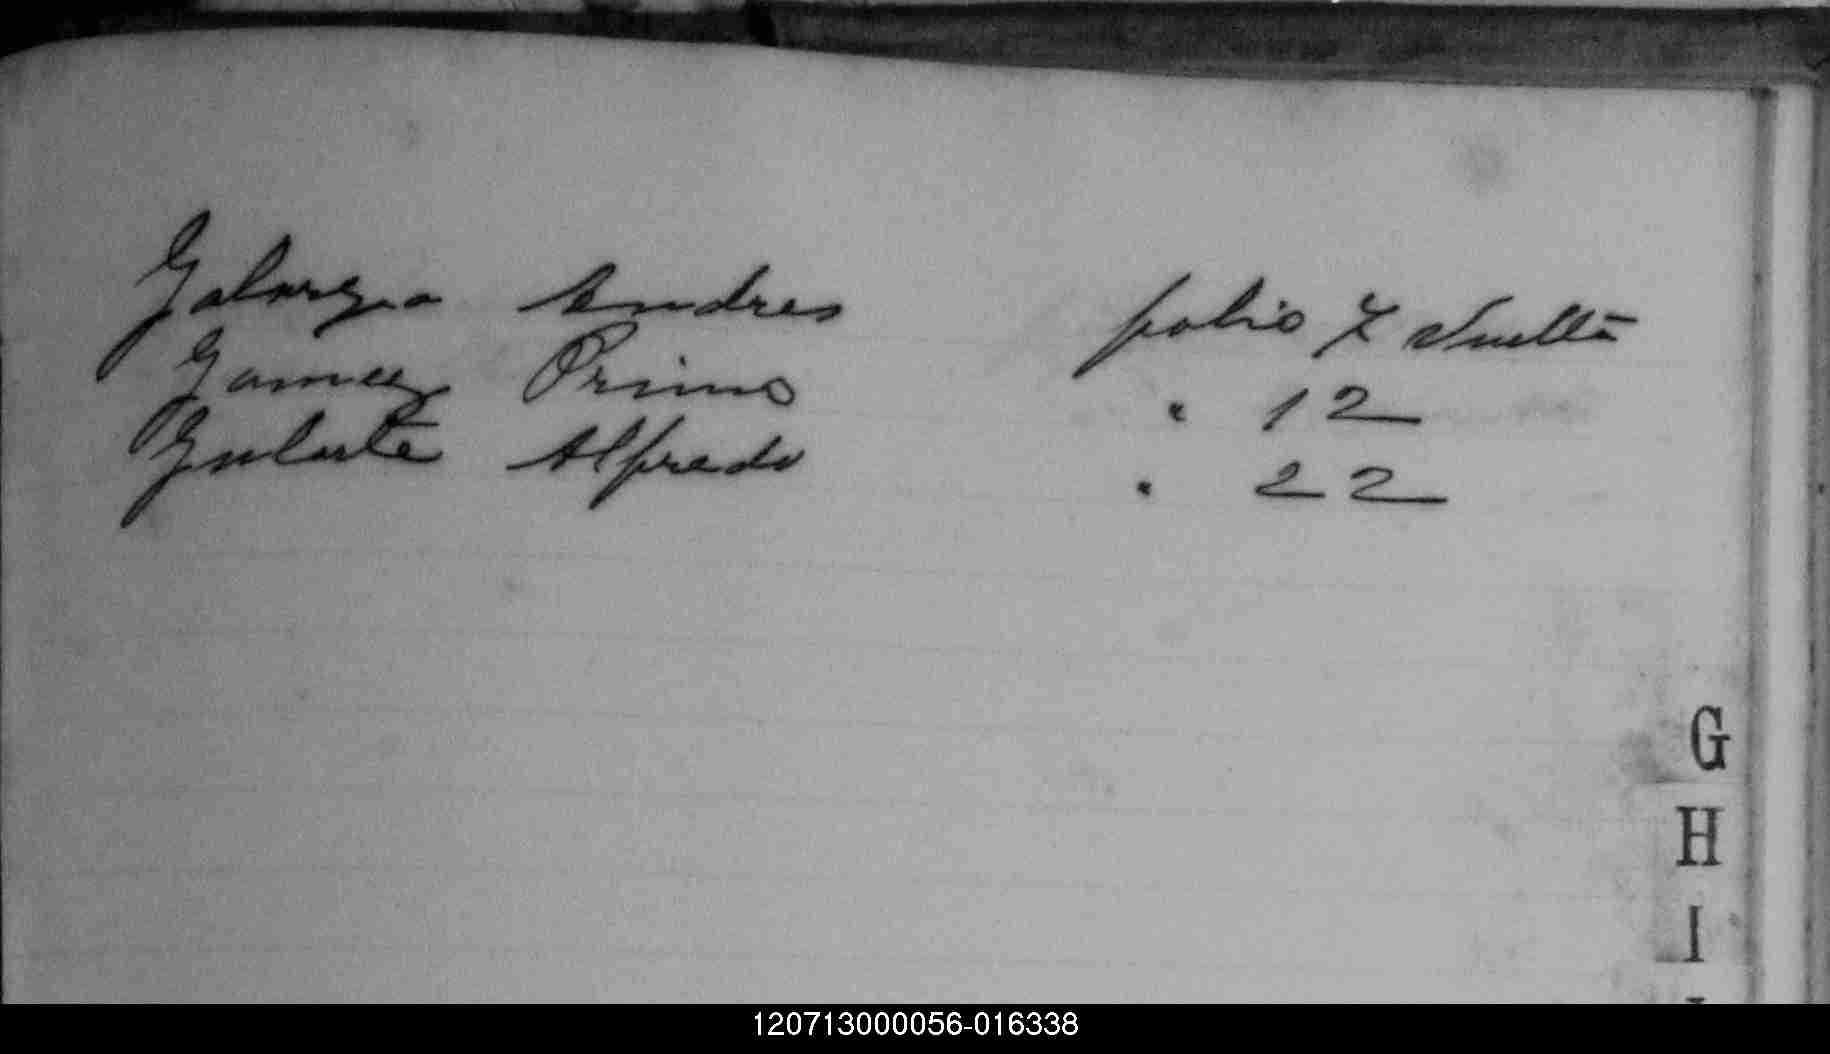 Galarza Andres folio 7 Vuelta
Gamez Primo " 12
Gularte Alfredo " 22
G
H
I
120713000056-016338